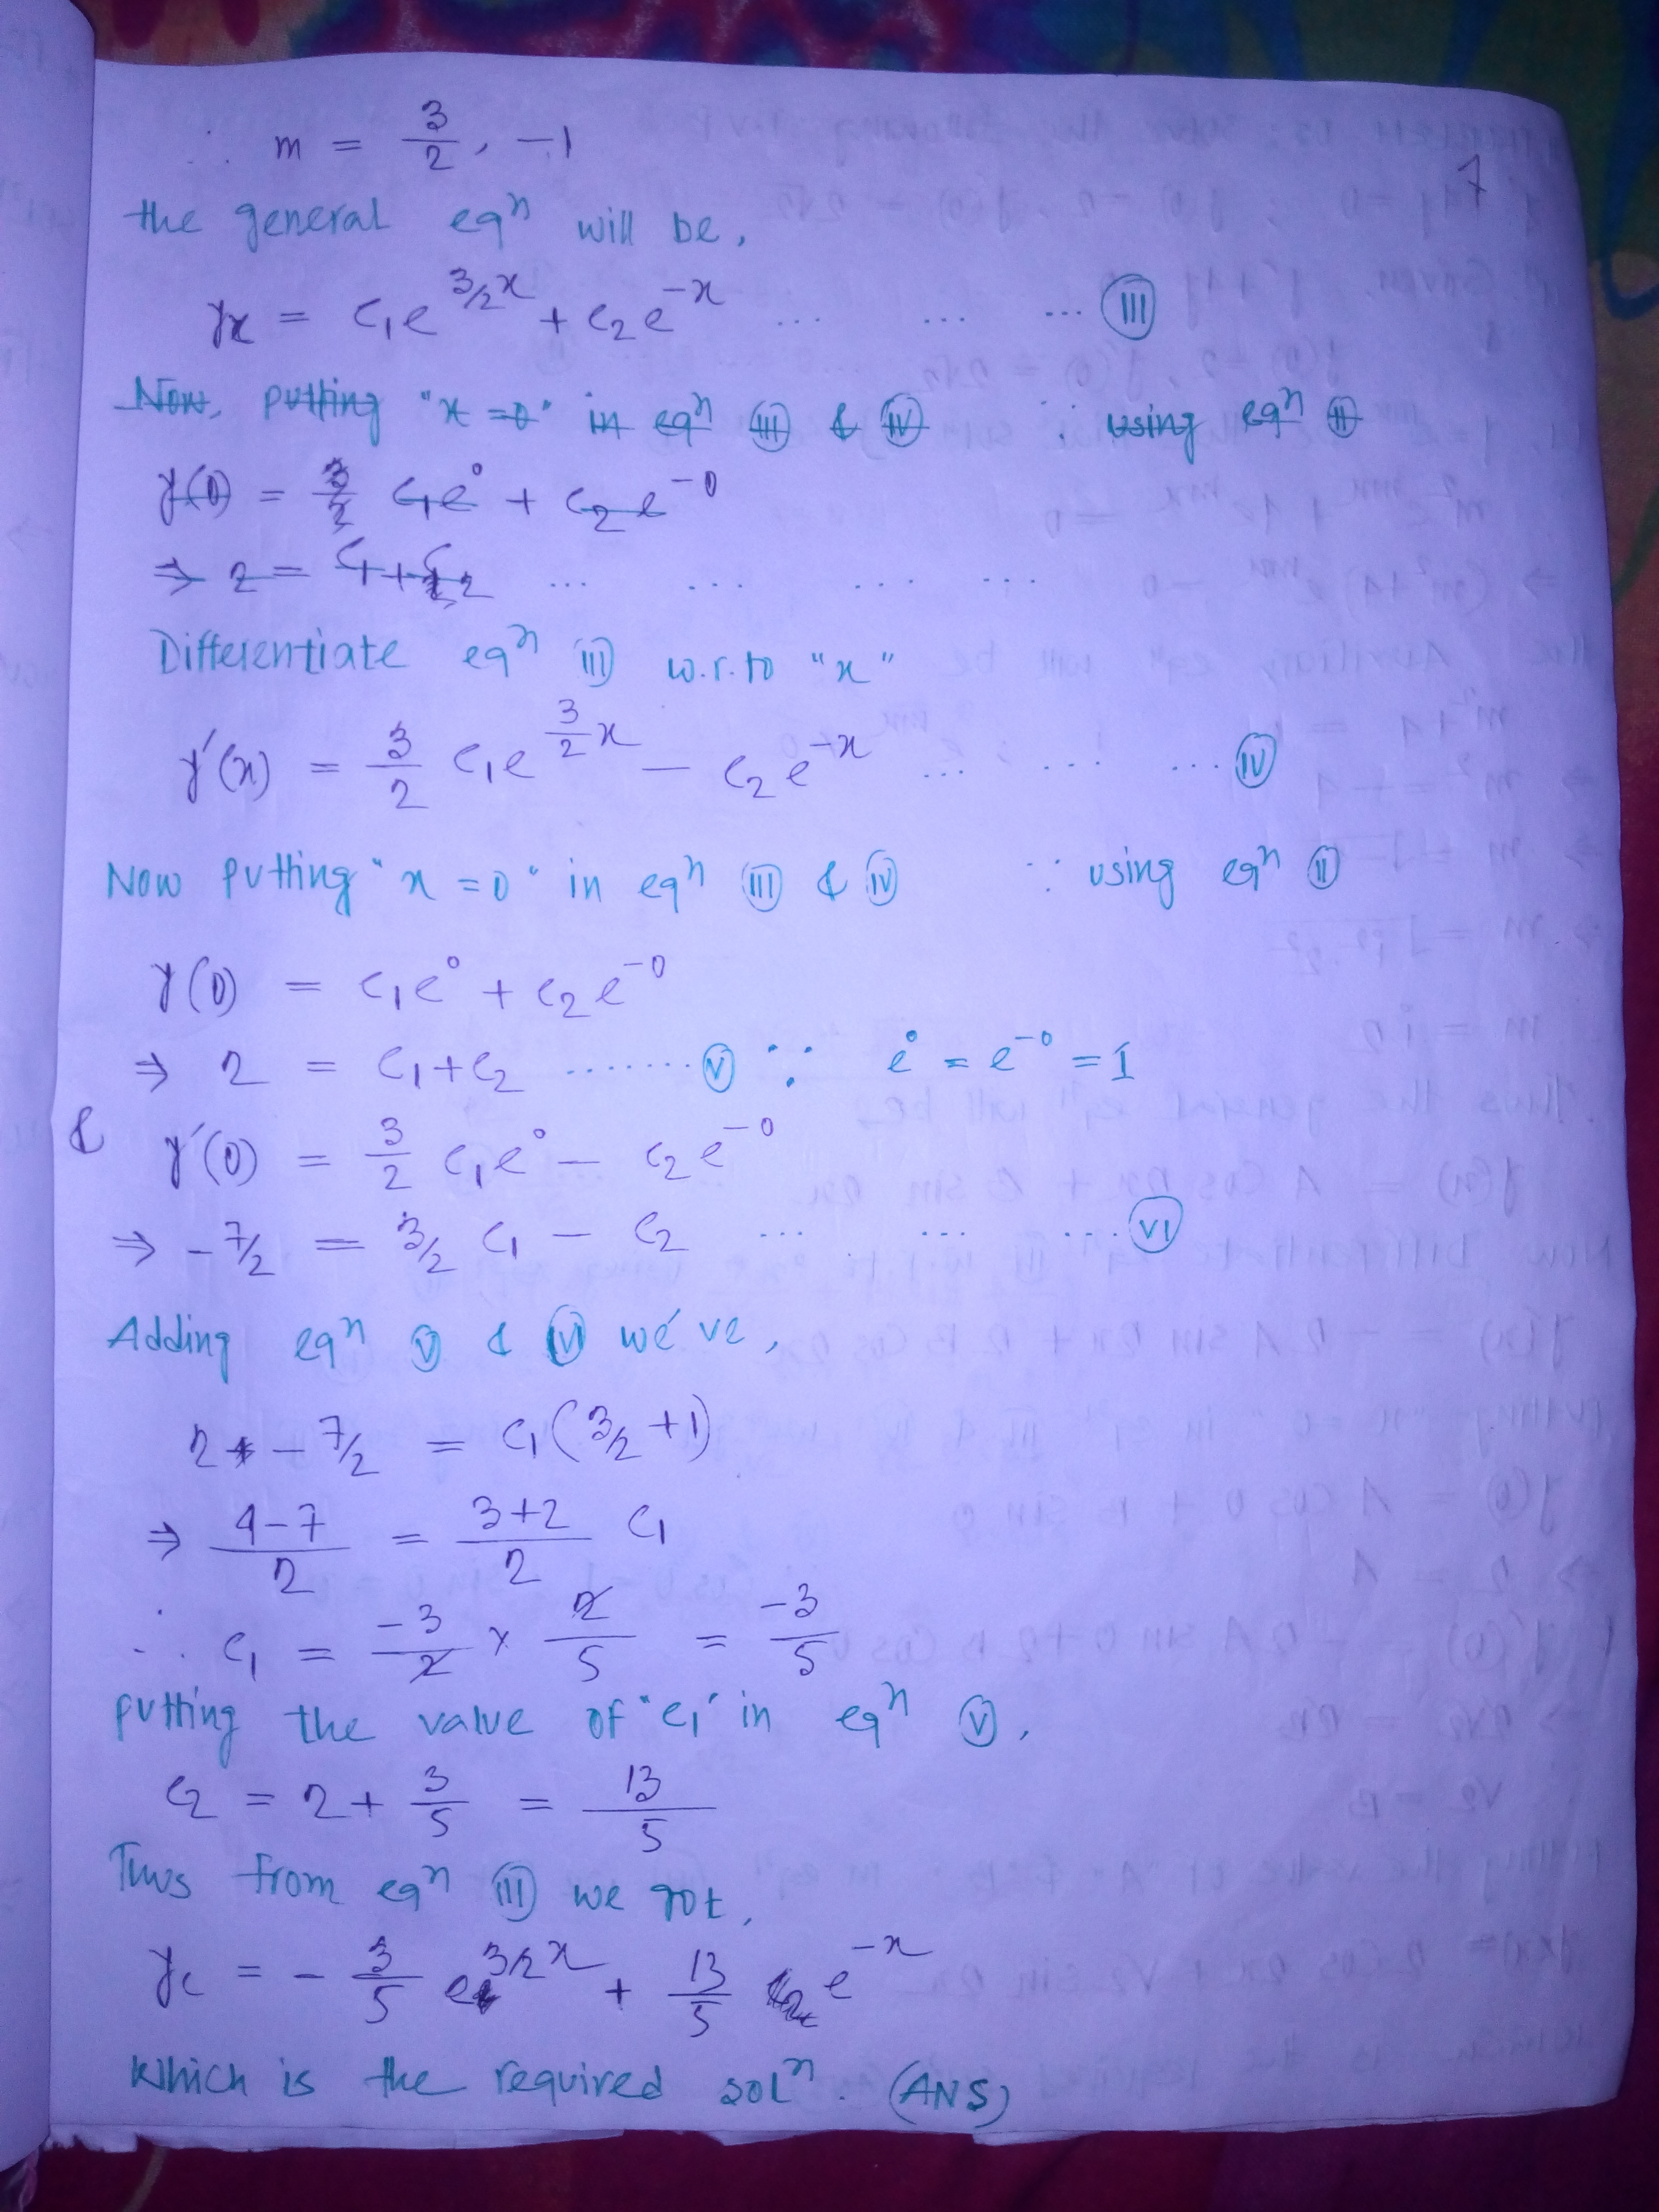 ∴ m = 3/2, -1
7
the general eqⁿ will be,
yx = c₁e^(3/2 x) + c₂e^(-x) ... ... ... (III)
Now, putting "x=0" in eqⁿ (III) & (IV) ∵ using eqⁿ (II)
y(0) = 3/2 c₁e° + c₂e^(-0)
⇒ 2 = c₁+c₂ ... ... ... ...
Differentiate eqⁿ (III) w.r.to "x"
y′(x) = 3/2 c₁e^(3/2 x) − c₂e^(-x) ... ... ... (IV)
Now putting "x=0" in eqⁿ (III) & (IV) ∵ using eqⁿ (II)
y(0) = c₁e° + c₂e^(-0)
⇒ 2 = c₁+c₂ ........ (V) ∵ e° = e^(-0) = 1
& y′(0) = 3/2 c₁e° − c₂e^(-0)
⇒ -7/2 = 3/2 c₁ − c₂ ... ... ... (VI)
Adding eqⁿ (V) & (VI) we've,
2 - 7/2 = c₁(3/2 +1)
⇒ (4-7)/2 = (3+2)/2 c₁
∴ c₁ = -3/2 × 2/5 = -3/5
putting the value of "c₁" in eqⁿ (V),
c₂ = 2 + 3/5 = 13/5
Thus from eqⁿ (III) we got,
yc = - 3/5 e^(3/2 x) + 13/5 e^(-x)
Which is the required solⁿ. (ANS)